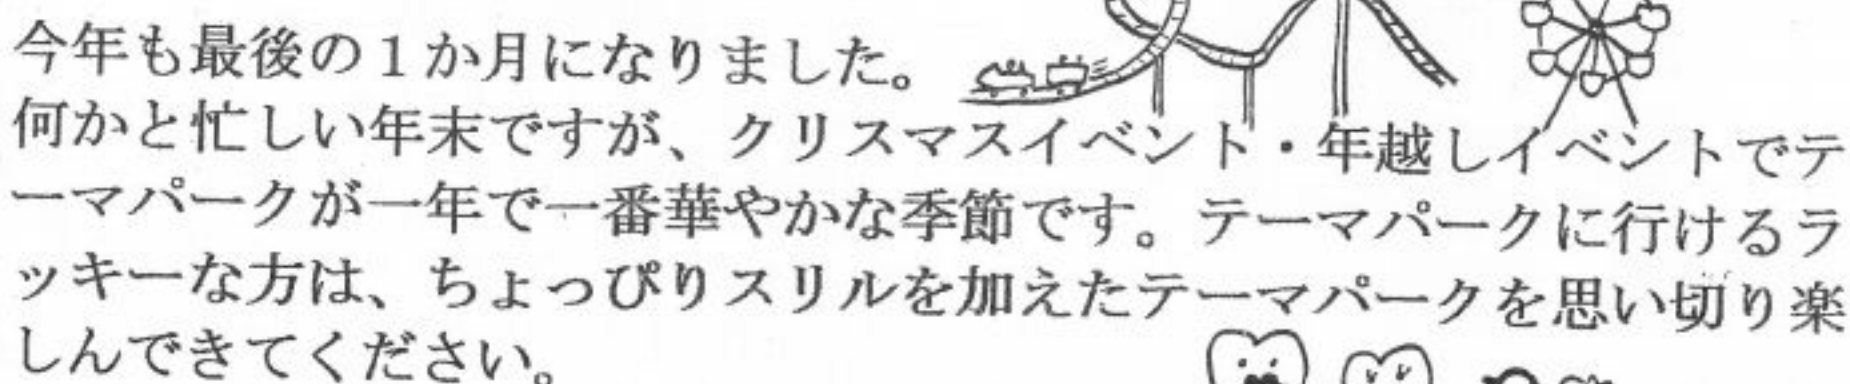 今年も最後の１か月になりました。
何かと忙しい年末ですが、クリスマスイベント・年越しイベントでテ
ーマパークが一年で一番華やかな季節です。テーマパークに行けるラ
ッキーな方は、ちょっぴりスリルを加えたテーマパークを思い切り楽
しんできてください。